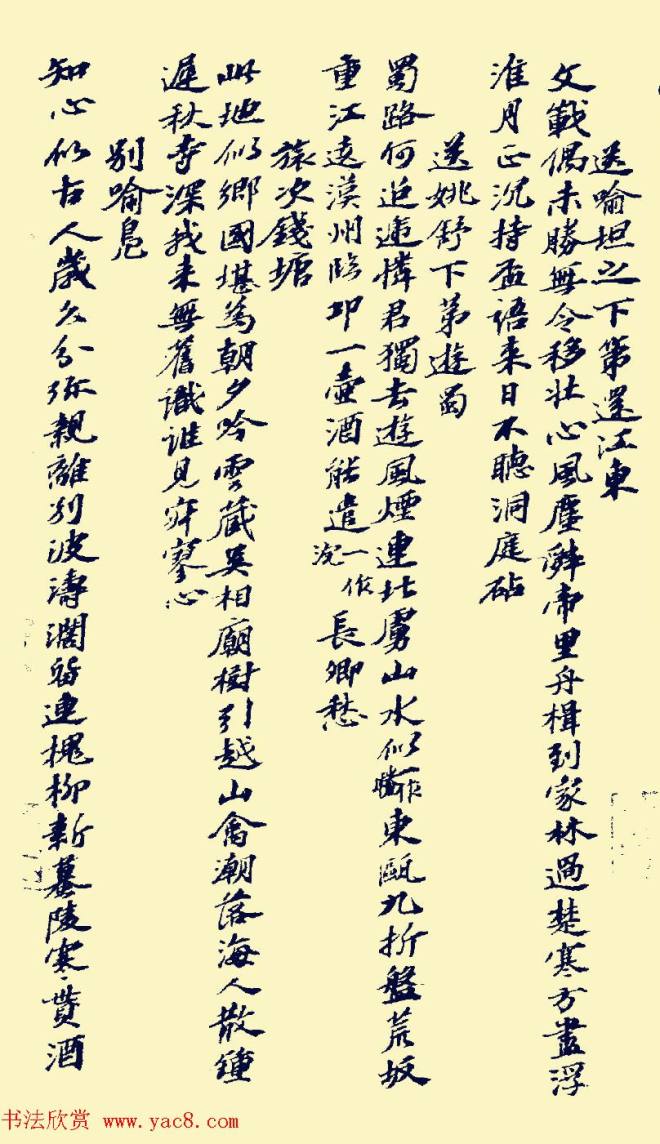 送喻坦之下第還江東
文戰偶未勝無令移壯心風塵辭帝里舟楫到家林過楚寒方盡浮
淮月正沉持盃語來日不聽洞庭砧
送姚舒下第遊蜀
蜀路何迢遞憐君獨去遊風煙連北虜山水似一作勝東甌九折盤荒坂
重江遶漢州臨邛一壺酒能遣一作沉長卿愁
旅次錢塘
此地似鄉國堪為朝夕吟雲藏吳相廟樹引越山禽潮落海人散鍾
遲秋寺深我來無舊識誰見寂寥心
別喻鳧
知心似古人歲久分弥親離別波濤闊留連槐柳新蟇陵寒貰酒
书法欣赏 www.yac8.com